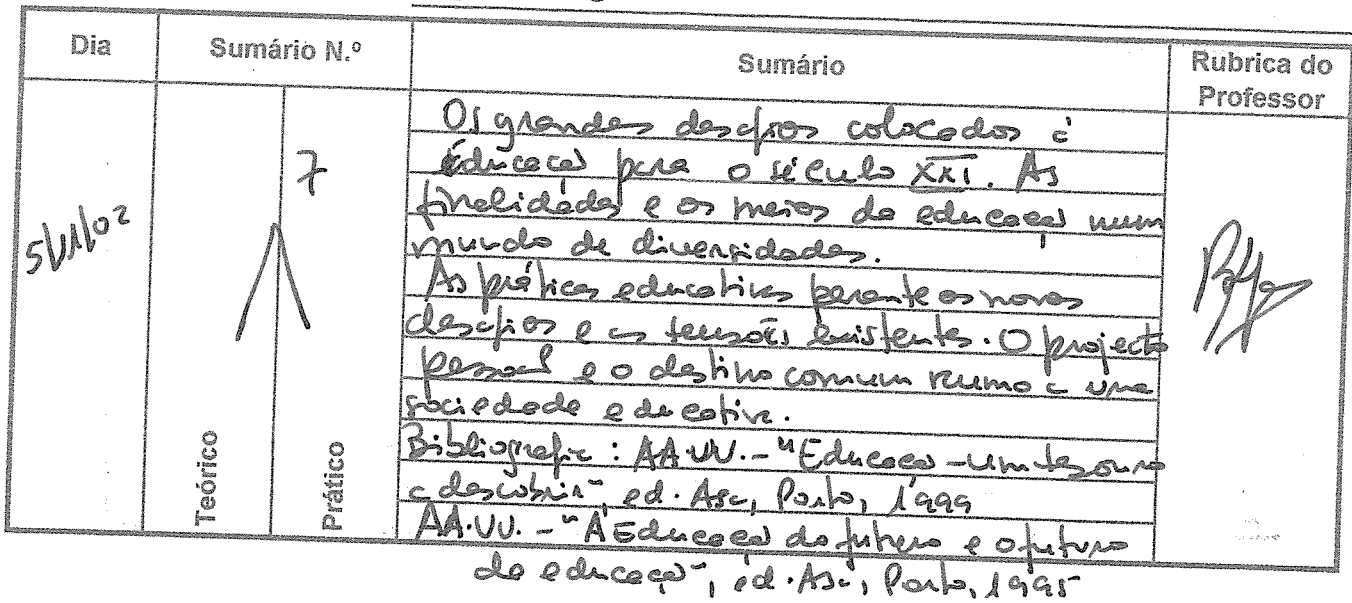 Dia
Sumário N.º
Sumário
Rubrica do
Professor
5/11/02
7
Teórico
Prático
Os grandes desafios colocados à
Educação para o século XXI. As
finalidades e os meios da educação num
mundo de diversidades.
As práticas educativas perante os novos
desafios e as tensões existentes. O projecto
pessoal e o destino comum rumo a uma
sociedade educativa.
Bibliografia: AA.VV. - "Educação - um tesouro
a descobrir", ed. Asa, Porto, 1999
AA.VV. - "A Educação do futuro e o futuro
da educação", ed. Asa, Porto, 1995